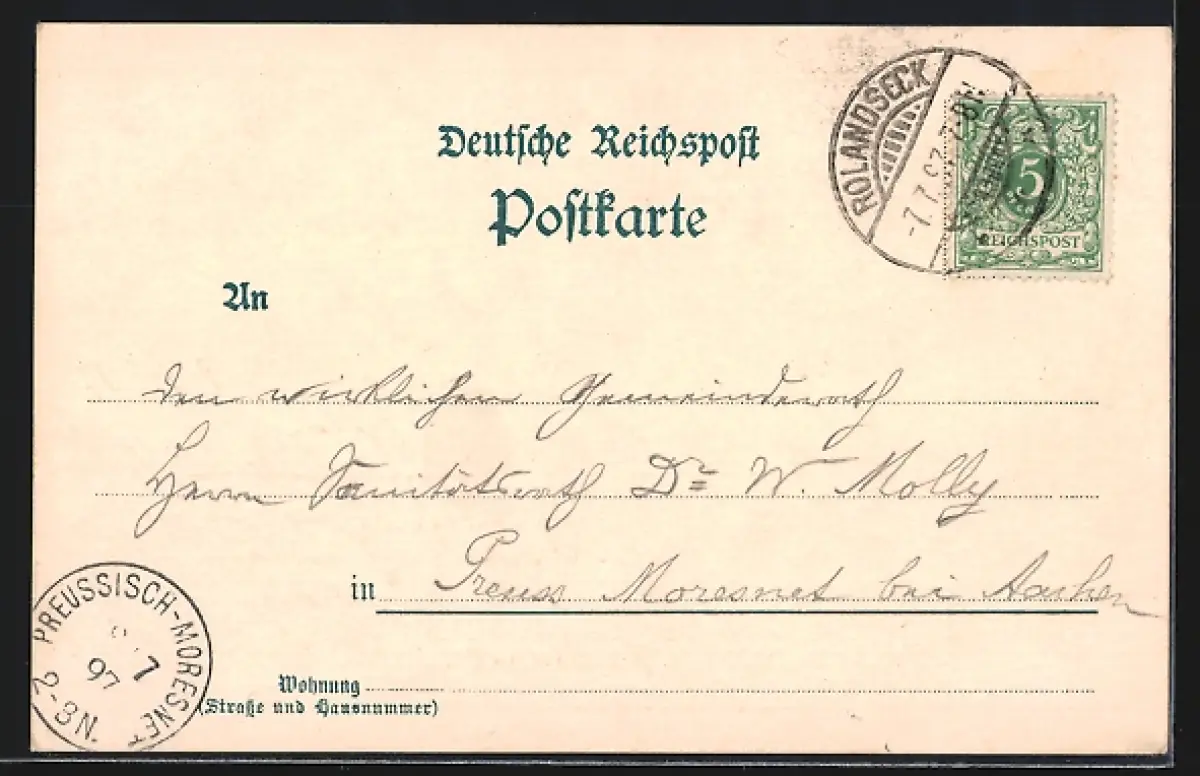 Deutsche Reichspost
Postkarte
ROLANDSECK
7.7.97
5
REICHSPOST
An
den wirklichen Gemeinderath
Herrn Sanitätsrath Dr W. Molly
in Preuss Moresnet bei Aachen
PREUSSISCH-MORESNET
7
97
2-3N.
Wohnung
(Straße und Hausnummer)